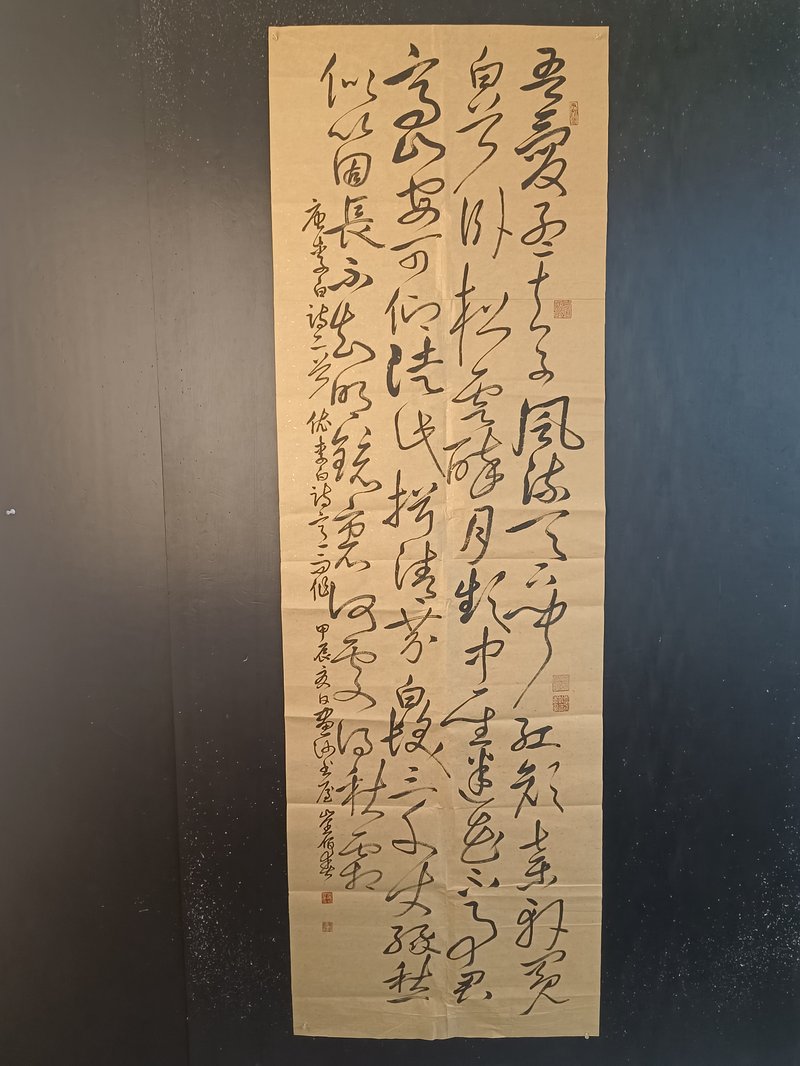 吾爱孟夫子风流天下闻红颜弃轩冕
白首卧松云醉月频中圣迷花不事君
高山安可仰徒此揖清芬白发三千丈缘愁
似个长不知明镜里何处得秋霜
唐李白诗二首 李白诗 甲辰 日画沙书屋